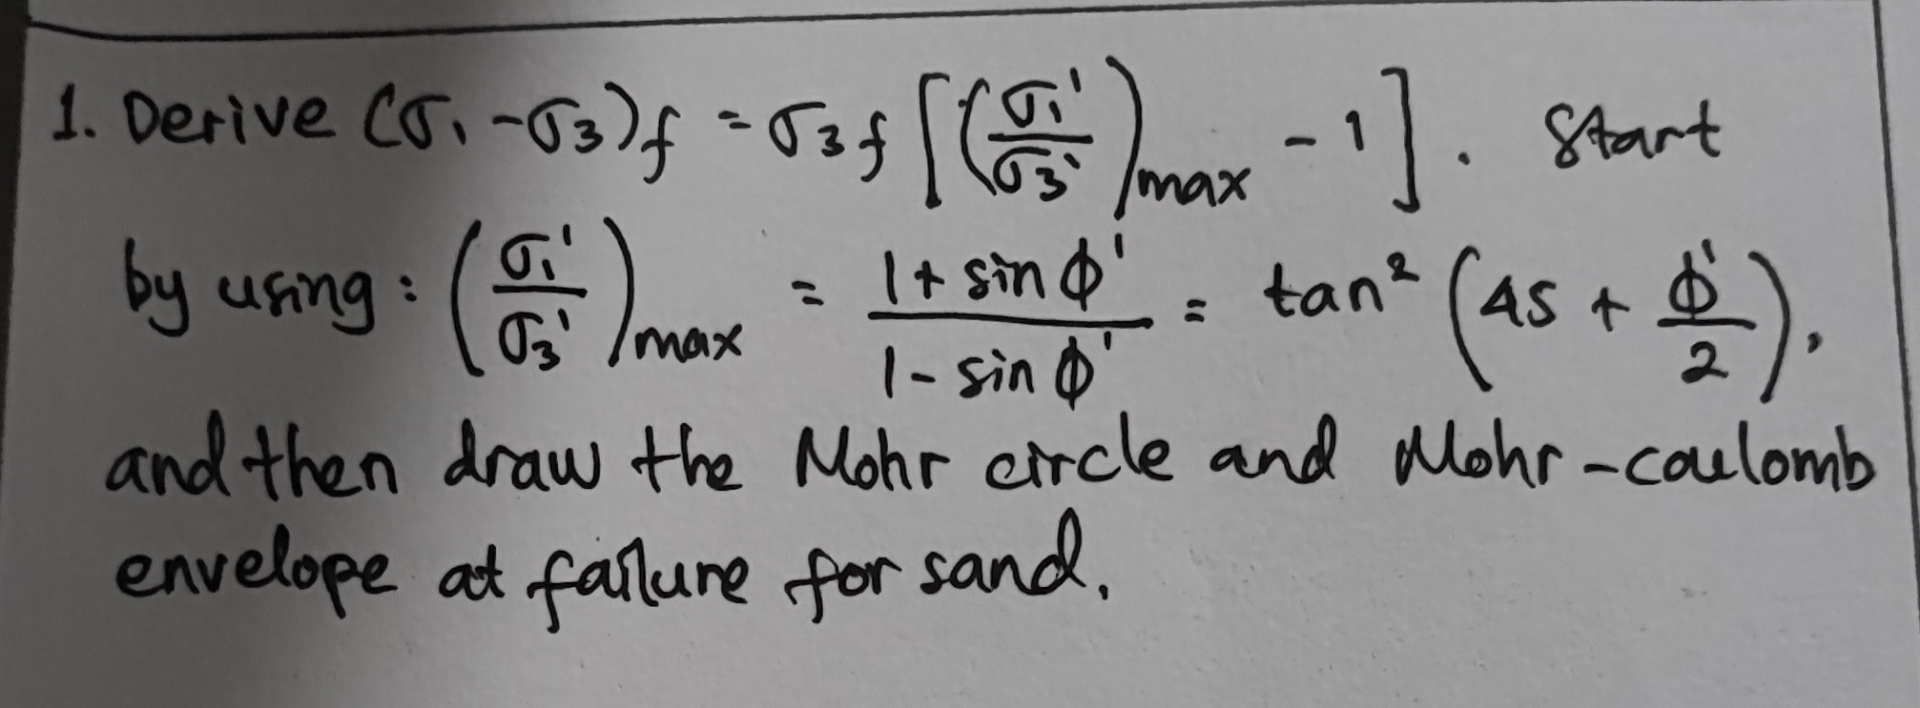 1. Derive (σ₁ - σ₃)f = σ₃f [(σ₁'/σ₃')max - 1]. Start
by using : (σ₁'/σ₃')max = (1 + sin ϕ')/(1 - sin ϕ') = tan² (45 + ϕ'/2),
and then draw the Mohr circle and Mohr-coulomb
envelope at failure for sand.